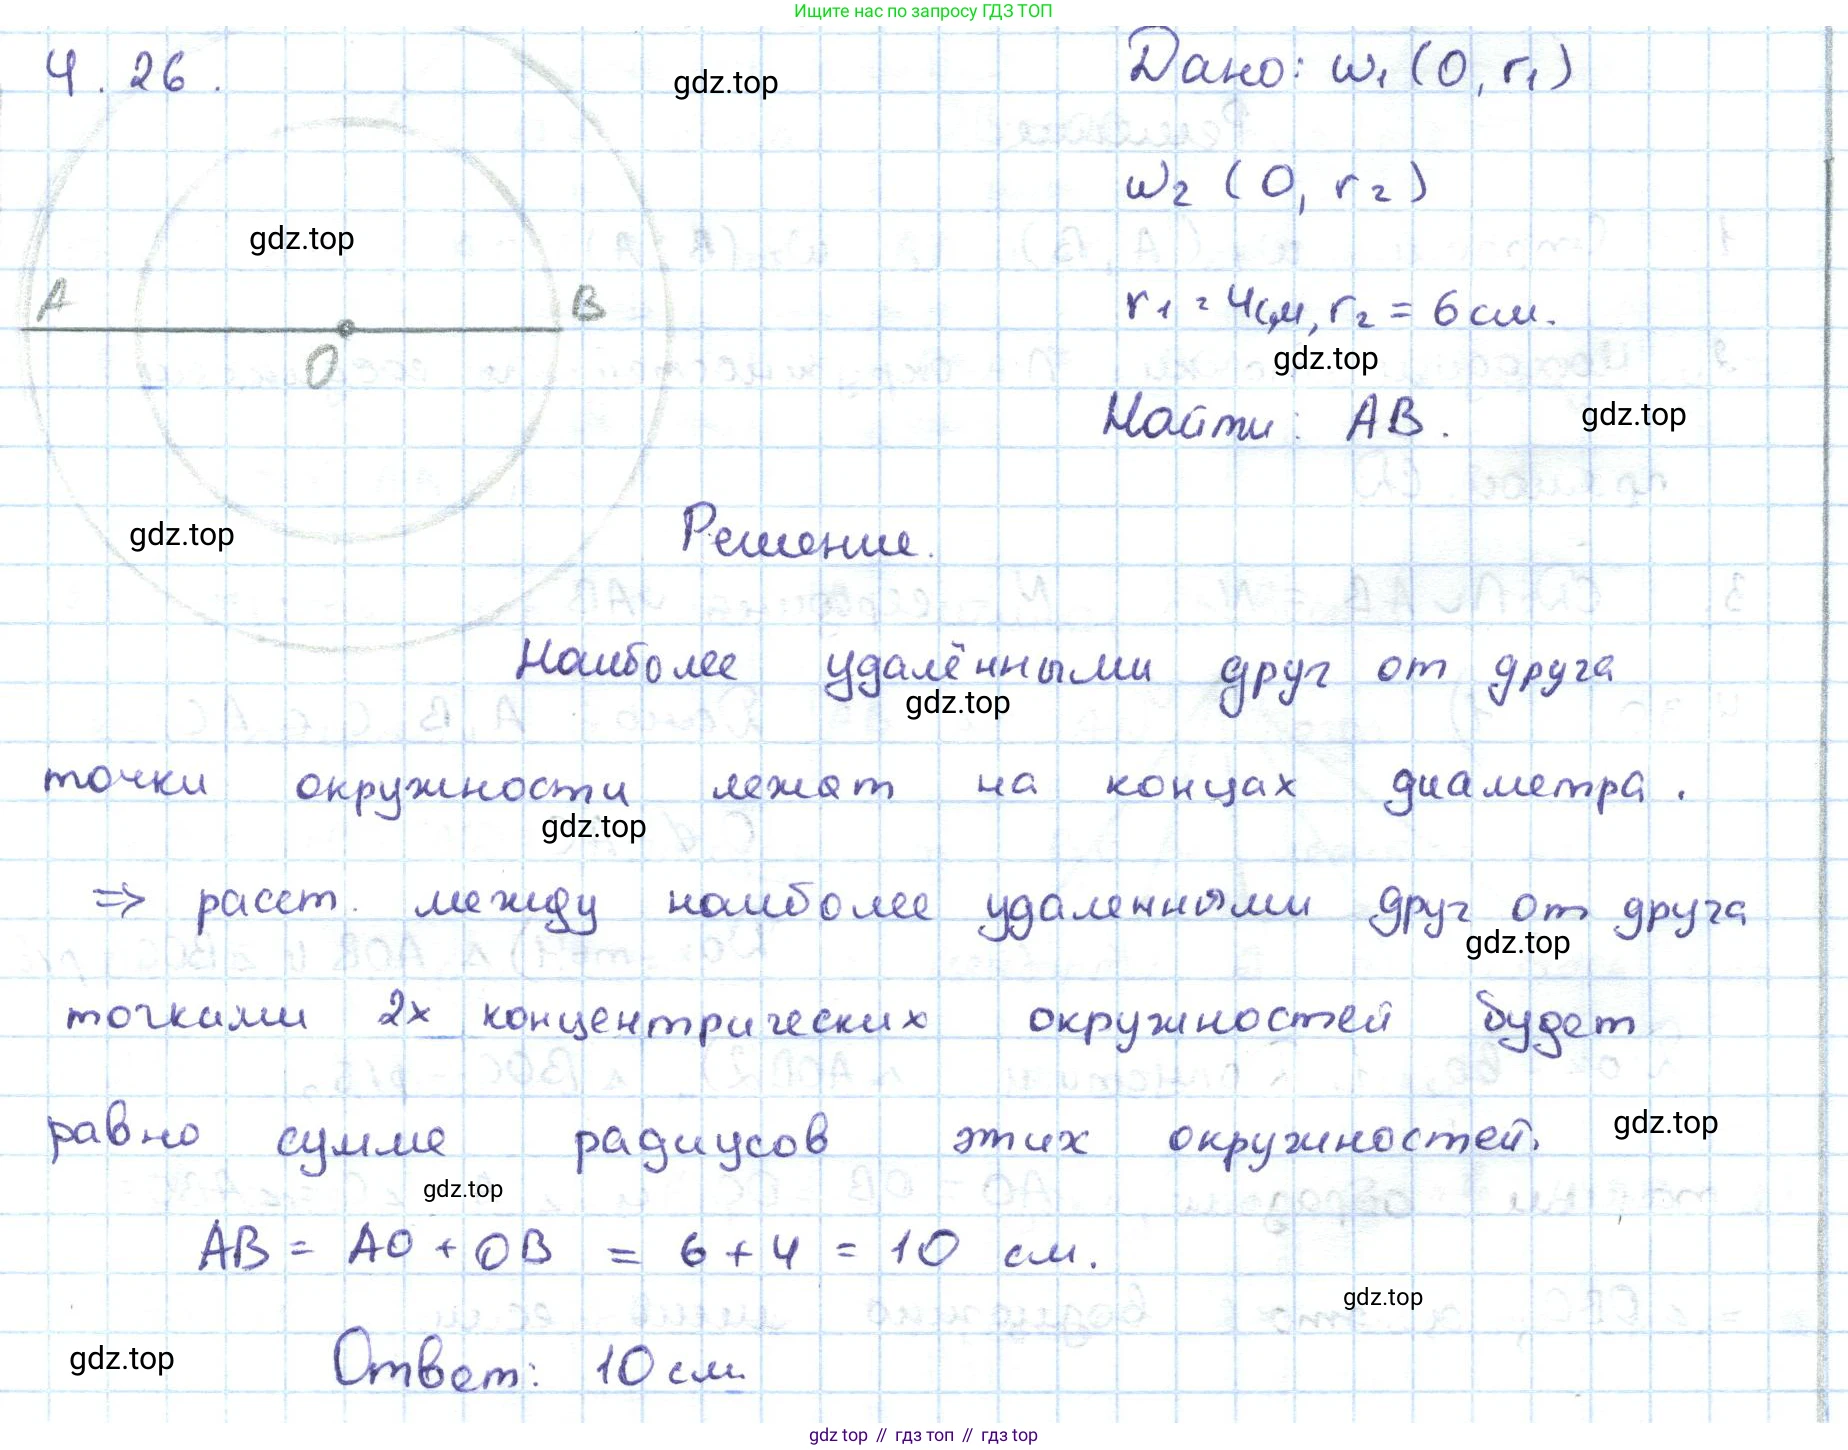 Ищите нас по запросу ГДЗ ТОП
4.26.
gdz.top
Дано: ω₁ (O, r₁)
ω₂ (O, r₂)
gdz.top
A
B
O
r₁ = 4см, r₂ = 6 см.
gdz.top
Найти: AB.
gdz.top
gdz.top
Решение.
Наиболее удалёнными друг от друга
gdz.top
точки окружности лежат на концах диаметра.
gdz.top
⇒ расст. между наиболее удаленными друг от друга
gdz.top
точками 2х концентрических окружностей будет
равно сумме радиусов этих окружностей.
gdz.top
gdz.top
AB = AO + OB = 6 + 4 = 10 см.
gdz.top
gdz.top
Ответ: 10 см
gdz top // гдз топ // gdz top